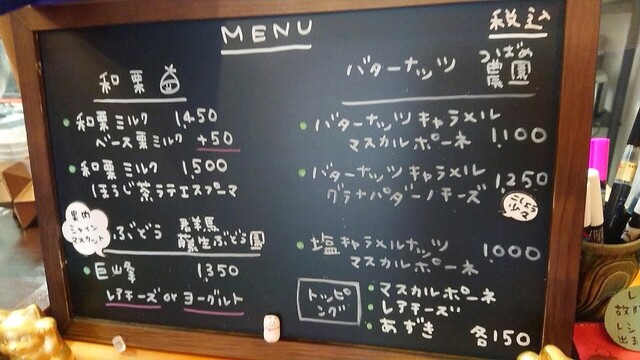 MENU
税込
和栗
和栗ミルク 1,450
ベース栗ミルク +50
和栗ミルク 1,500
ほうじ茶ラテエスプーマ
里内
シャイン
マスカット
ぶどう 群馬
藤生ぶどう園
巨山峯 1,350
レアチーズ or ヨーグルト
バターナッツ つばめ
農園
バターナッツキャラメル
マスカルポーネ 1,100
バターナッツキャラメル 1,250
グラナパダーノチーズ
こしょう
塩キャラメルナッツ 1000
マスカルポーネ
トッピ
ング
マスカルポーネ
レアチーズ
あずき 各150
故障
レシ
出ま